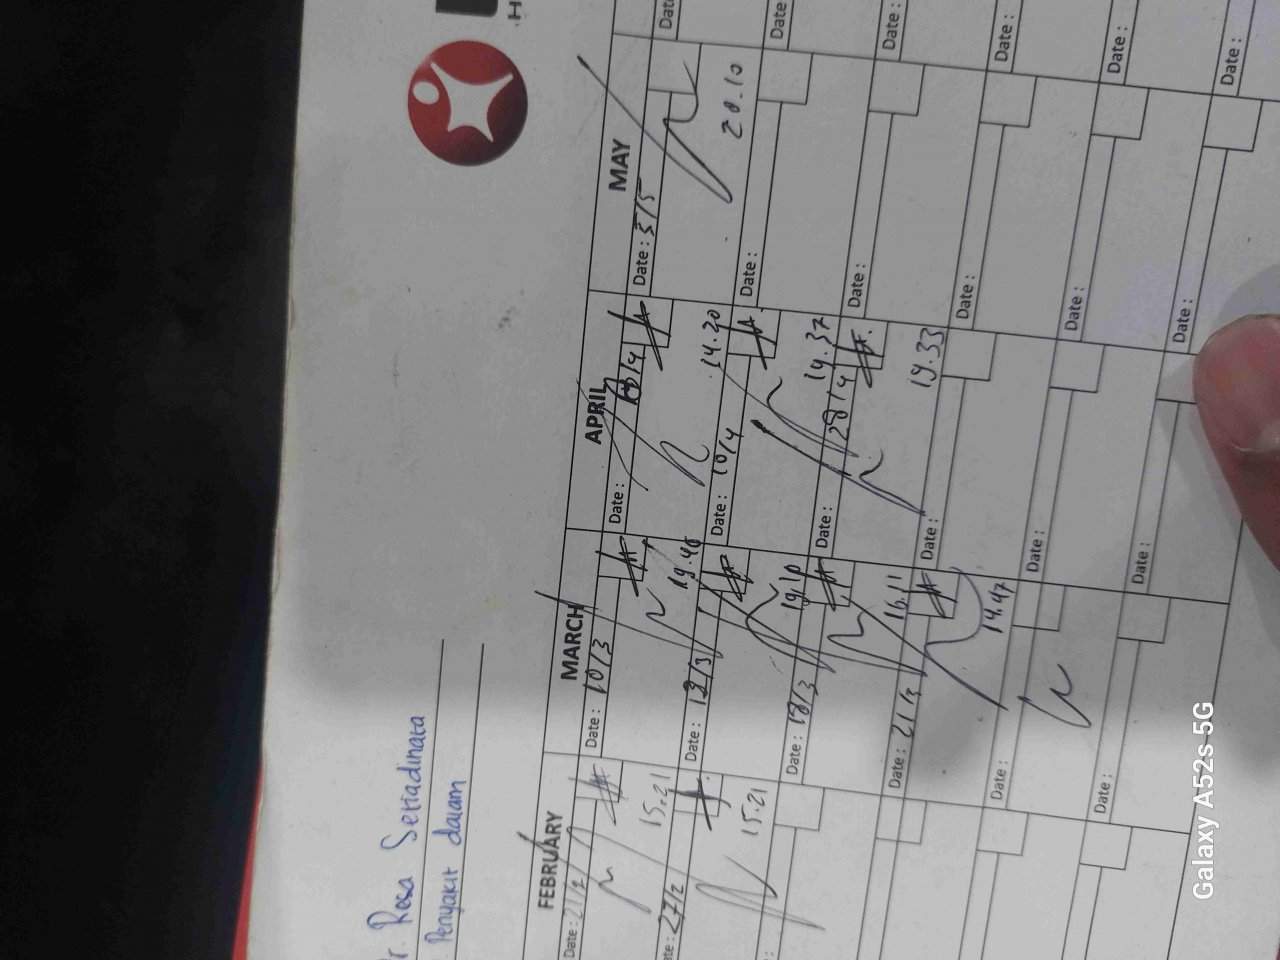 Resa Setiadinata
Penyakit dalam
FEBRUARY
MARCH
APRIL
MAY
Date: 21/2
Date: 10/3
Date:
Date: 5/5
15.21
19.46
14.20
20.10
27/2
Date: 12/3
Date: 10/4
Date:
15.21
19.10
14.37
Date: 18/3
Date: 28/4
Date:
16.11
19.33
Date: 21/3
Date:
Date:
14.47
Date:
Date:
Date:
Date:
Date:
Date:
Date:
Date:
Date:
Date:
Date:
Date:
Galaxy A52s 5G